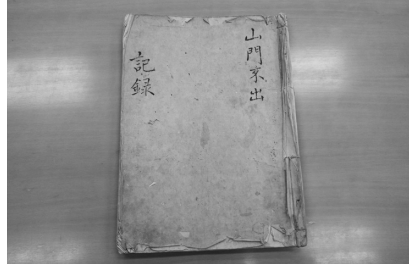 山門京出
記録